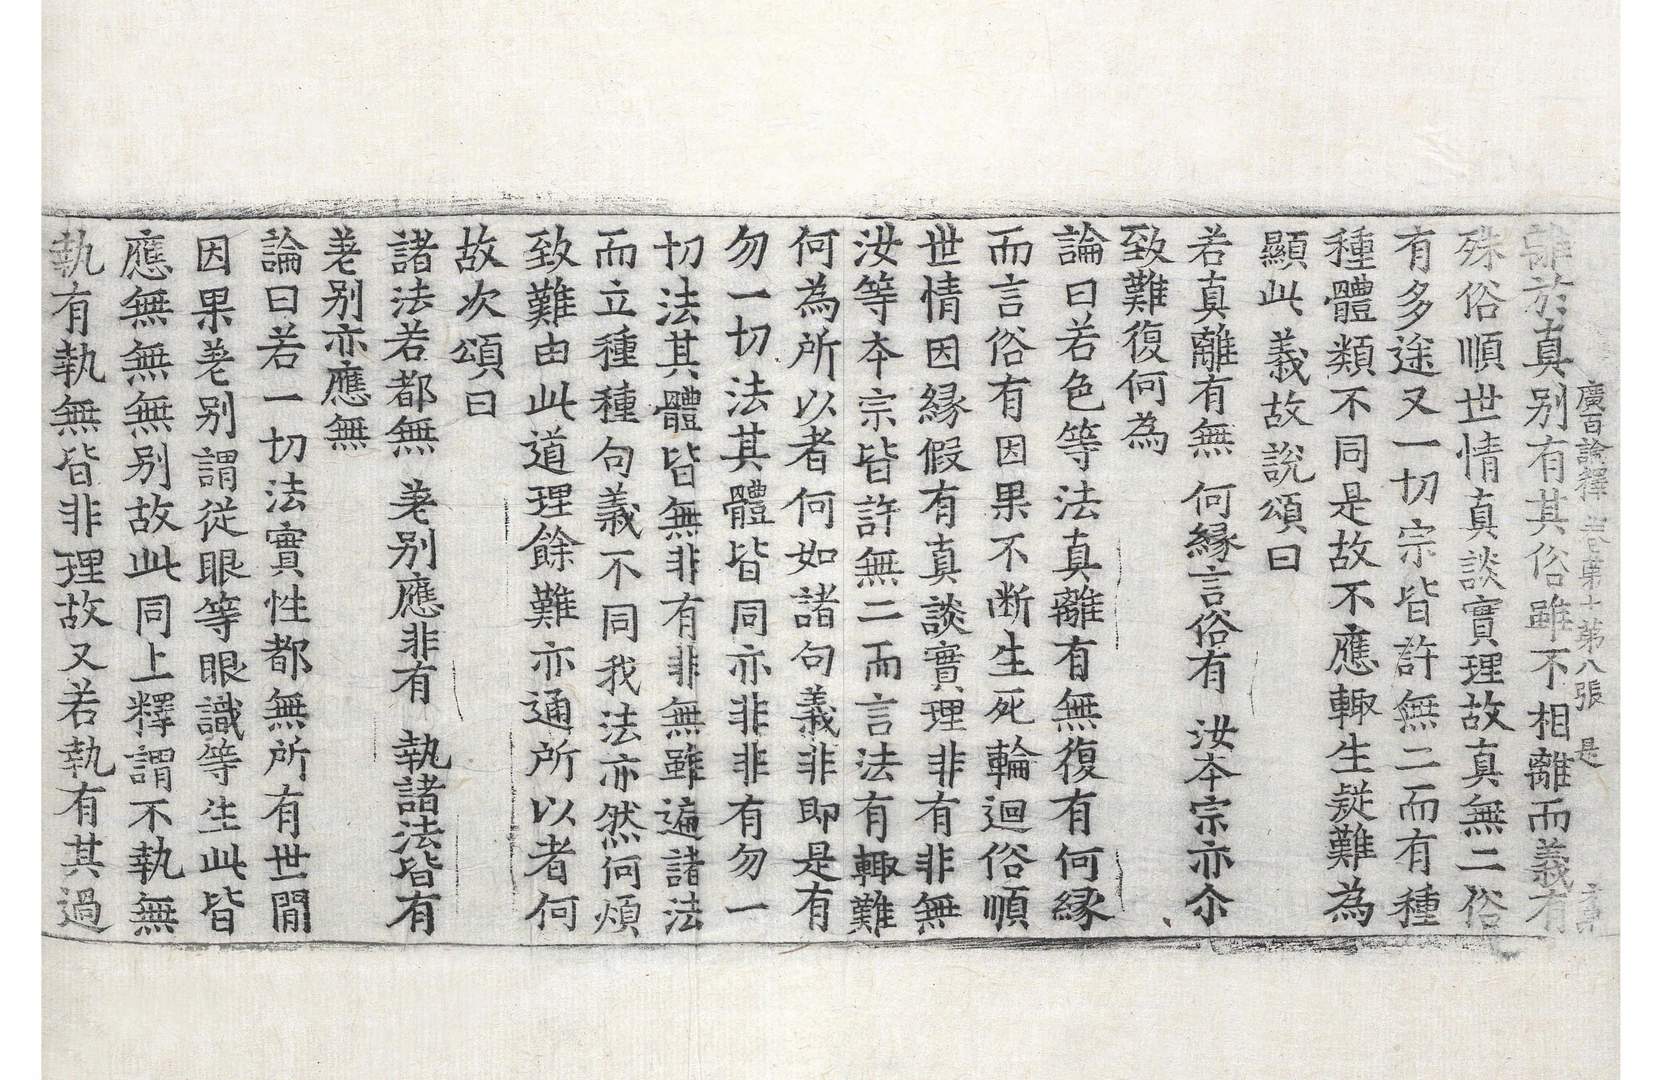 廣百論釋卷第十第八張　是
離於真別有其俗雖不相離而義有
殊俗順世情真談實理故真無二俗
有多途又一切宗皆許無二而有種
種體類不同是故不應輙生疑難為
顯此義故說頌曰
若真離有無　何緣言俗有　汝夲宗亦尒
致難復何為
論曰若色等法真離有無復有何緣
而言俗有因果不断生死輪迴俗順
世情因緣假有真談實理非有非無
汝等夲宗皆許無二而言法有輙難
何為所以者何如諸句義非即是有
勿一切法其體皆同亦非非有勿一
切法其體皆無非有非無雖遍諸法
而立種種句義不同我法亦然何煩
致難由此道理餘難亦通所以者何
故次頌曰
諸法若都無　差别應非有　執諸法皆有
差别亦應無
論曰若一切法實性都無所有世間
因果差别謂從眼等眼識等生此皆
應無無無别故此同上釋謂不執無
執有執無皆非理故又若執有其過